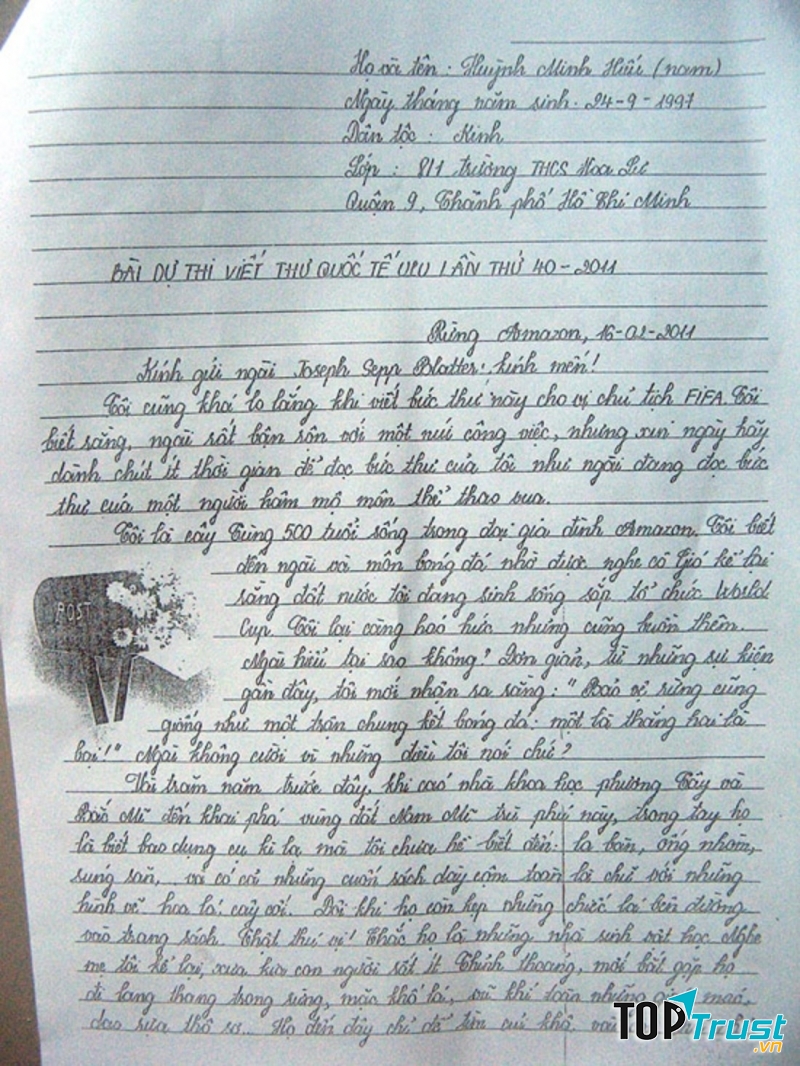 Họ và tên : Huỳnh Minh Hiếu (nam)
Ngày tháng năm sinh : 24-9-1997
Dân tộc : Kinh
Lớp : 8/1 trường THCS Hoa Lư
Quận 9, Thành phố Hồ Chí Minh
BÀI DỰ THI VIẾT THƯ QUỐC TẾ UPU LẦN THỨ 40-2011
Rừng Amazon, 16-02-2011
Kính gửi ngài Joseph Sepp Blatter kính mến!
Tôi cũng khá lo lắng khi viết bức thư này cho vị chủ tịch FIFA. Tôi
biết rằng, ngài rất bận rộn với một núi công việc, nhưng xin ngày hãy
dành chút ít thời gian để đọc bức thư của tôi như ngài đang đọc bức
thư của một người hâm mộ môn thể thao vua.
Tôi là cây Tùng 500 tuổi sống trong đại gia đình Amazon. Tôi biết
đến ngài và môn bóng đá nhờ được nghe cô Gió kể lại
rằng đất nước tôi đang sinh sống sắp tổ chức World
Cup. Tôi lại càng háo hức nhưng cũng buồn thêm.
POST
Ngài hiểu tại sao không? Đơn giản, từ những sự kiện
gần đây, tôi mới nhận ra rằng : "Bảo vệ rừng cũng
giống như một trận chung kết bóng đá : một là thắng hai là
bại!" Ngài không cười vì những điều tôi nói chứ?
Vài trăm năm trước đây, khi các nhà khoa học phương Tây và
Bắc Mĩ đến khai phá vùng đất Nam Mĩ trù phú này, trong tay họ
là biết bao dụng cụ kì lạ mà tôi chưa hề biết đến : la bàn, ống nhòm,
súng săn,... và có cả những cuốn sách dày cộm toàn là chữ với những
hình vẽ hoa lá cây cối. Đôi khi họ còn kẹp những chiếc lá bên đường
vào trang sách. Thật thú vị! Chắc họ là những nhà sinh vật học. Nghe
mẹ tôi kể lại, xưa kia con người rất ít. Thỉnh thoảng, mới bắt gặp họ
đi lang thang trong rừng, mặc khố lá, vũ khí toàn những giáo mác,
dao rựa thô sơ... Họ đến đây chỉ để tìm củi khô,
TOPTrust.vn